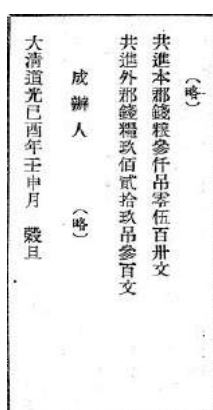 （略）
共進本郡錢粮參仟吊零伍百卅文
共進外郡錢糧玖佰貳拾玖吊參百文
成辦人　（略）
大淸道光己酉年壬申月　穀旦